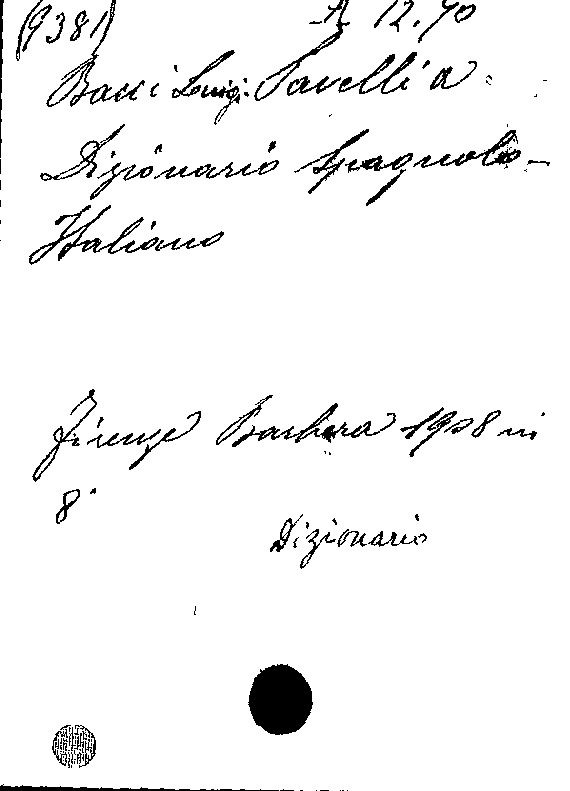 (9381) A 12.70
Bacci Luigi. Savelli A
Dizionario Spagnolo-
Italiano
Firenze Barbera 1908 in
8°
Dizionario